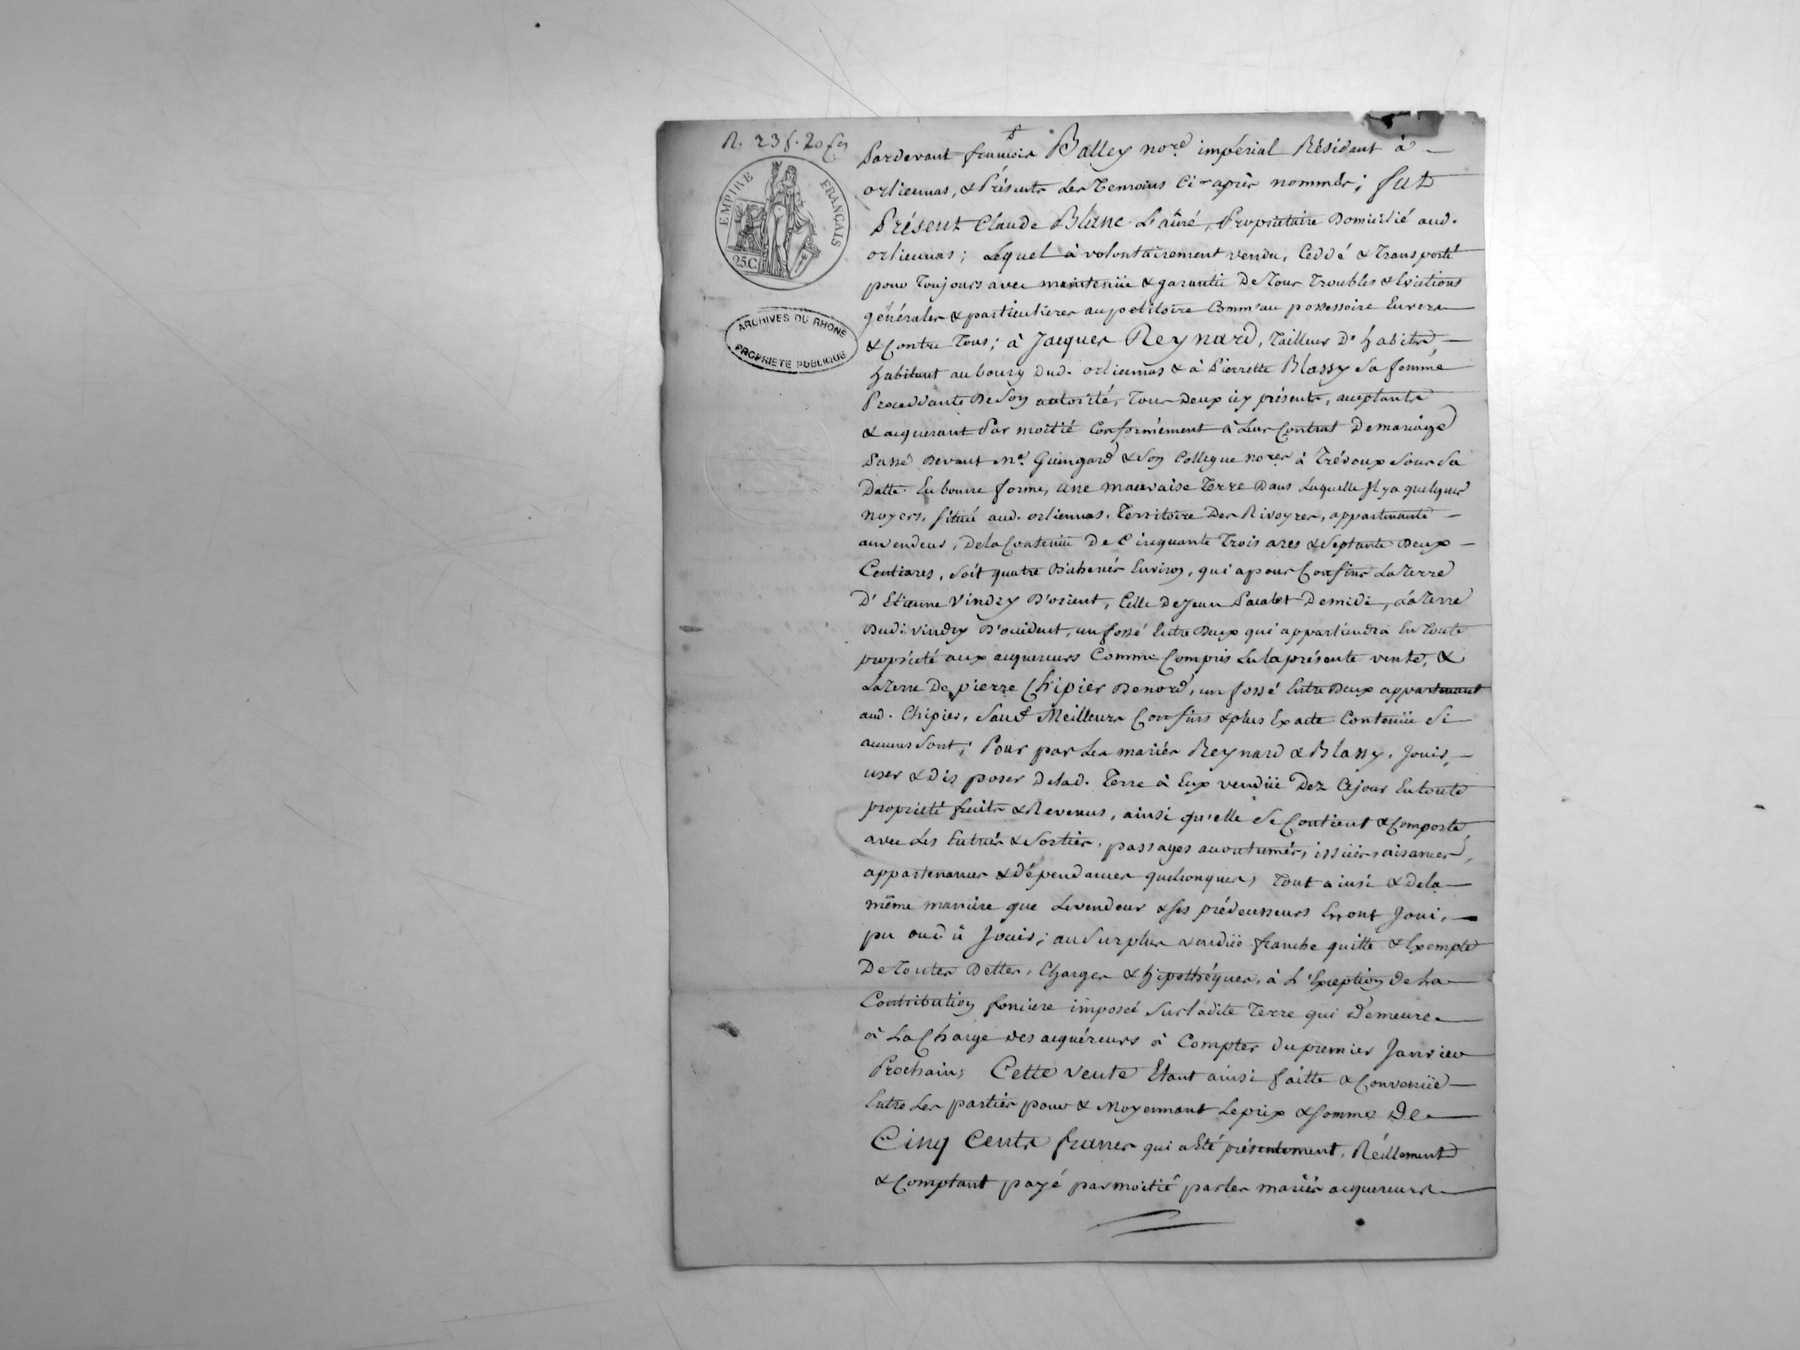 R. 23f. 20 Ces
EMPIRE FRANÇAIS
25C
ARCHIVES DU RHÔNE
PROPRIÉTÉ PUBLIQUE
Pardevant françois Balley no.re impérial Résidant à
orliennas, & Présents Les Temoins Ci-après nommés; fut
Présent Claude Blanc L'aîné, Propriétaire Domicilié aud.
orliennas; Lequel à volontairement vendu, Ceddé & Transporté
pour Toujours avec maintenüe & garantie De Tous Troubles & Evictions
générales & particulieres au petitoire Comm'au possessoire Envers
& Contre Tous; à Jacques Reynard, Tailleur D'habits,
habitant au bourg dud. orliennas & à Pierrette Blassy Sa femme,
Procedante De Son autorité, Tous Deux icy présents, acceptants
& acquerant Par moitié Conformement à Leur Contrat De mariage
Passé Devant Me. Guingard & Son Collegue no.res à Trévoux Sous Sa
Datte En bonne forme, une mauvaise Terre Dans Laquelle Il ya quelques
noyers, Située aud. orliennas, Territoire Des Rivoyres, appartenante
au vendeur, De la Contenüe De Cinquante Trois ares & Septante Deux
Centiares, Soit quatre Bicherées Environ, qui a pour Confins La Terre
D'Etienne Vindry D'orient, Celle De Jean De midi, La Terre
Dud. vindry D'occident, un fossé Entre Deux qui appartiendra En Toute
propriété aux acquereurs Comme Compris En la présente vente, &
La Terre De pierre Chipier De nord, un fossé Entre Deux appartenant
aud. Chipier, Sauf Meilleurs Confins & plus Exacte Contenüe Si
aucuns Sont; Pour par Les mariés Reynard & Blassy, Jouir,
user & disposer de lad. Terre à Eux vendüe Dez Cejour En toute
propriété fruits & Revenus, ainsi qu'elle Se Contient & Comporte,
avec Ses Entrées & Sorties, passages accoutumés, issües, aisances,
appartenances & dépendances quelconques, Tout ainsi & de la
même manière que Le vendeur & Ses prédecesseurs En ont Joui,
pu ou dû Jouir; au Surplus vendüe franche quitte & Exempte
De Toutes Dettes, Charges & hipothéques, à L'Exception De La
Contribution fonciere imposée Sur ladite Terre qui Demeure
à La Charge des acquéreurs à Compter du premier Janvier
Prochain; Cette vente Etant ainsi faitte & Convenüe
Entre Les parties pour & Moyennant Le prix & Somme De
Cinq Cents francs qui a Eté présentement, Réellement
& Comptant payé par moitié par les mariés acquereurs